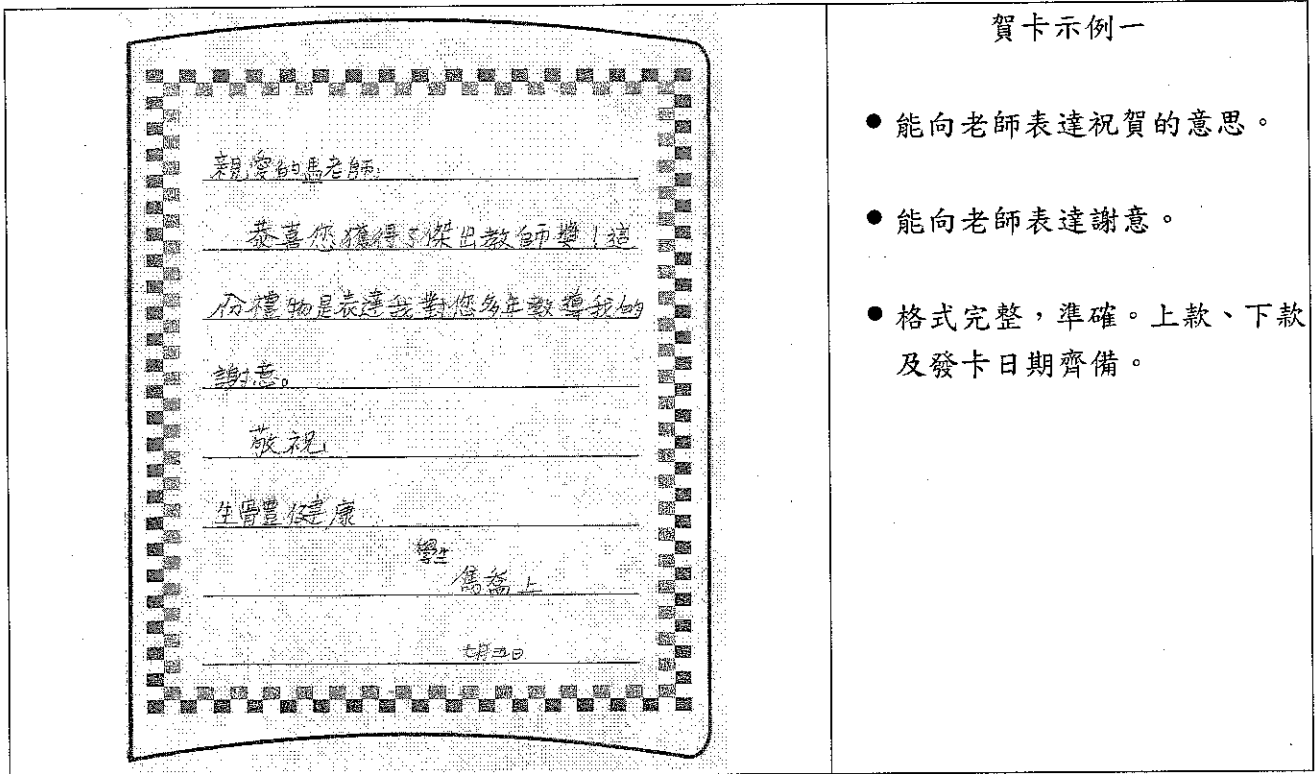 親愛的馬老師:
恭喜您獲得了傑出教師獎！這
份禮物是表達我對您多年教導我的
謝意。
敬祝
身體健康
學生
上
七月五日
賀卡示例一
● 能向老師表達祝賀的意思。
● 能向老師表達謝意。
● 格式完整，準確。上款、下款
及發卡日期齊備。